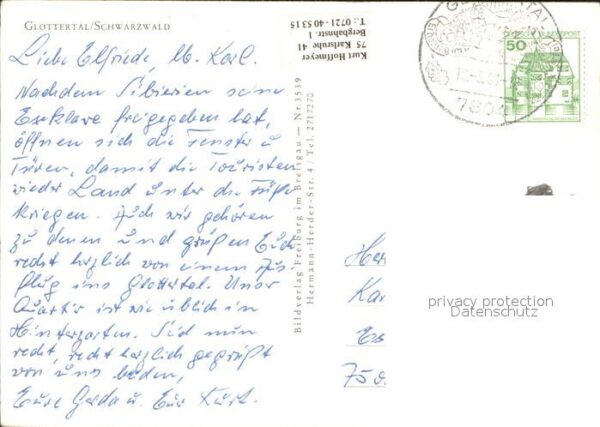 GLOTTERTAL/SCHWARZWALD
Liebe Elfriede, lb. Karl.
Nachdem Sibirien seine
Exklave freigegeben hat,
öffnen sich die Fenster u
Türen, damit die Touristen
wieder Land unter die Füße
kriegen. Auch wir gehören
zu denen und grüßen Euch
recht herzlich von einem Aus-
flug ins Glottertal. Unser
Quartir ist wie üblich in
Hinterzarten. Seid nun
recht, recht herzlich gegrüßt
von uns beiden,
Eure Gerda u. Eur Kurt.
Kurt Hoffmeyer
75 Karlsruhe 41
Bergbahnstr. 1
T.: 0721-40 53 15
Bildverlag Freiburg im Breisgau — Nr. 3539
Hermann-Herder-Str. 4 / Tel. 2717270
7804
50
BUNDESPOST
Her
Kar
Es
75
privacy protection
Datenschutz